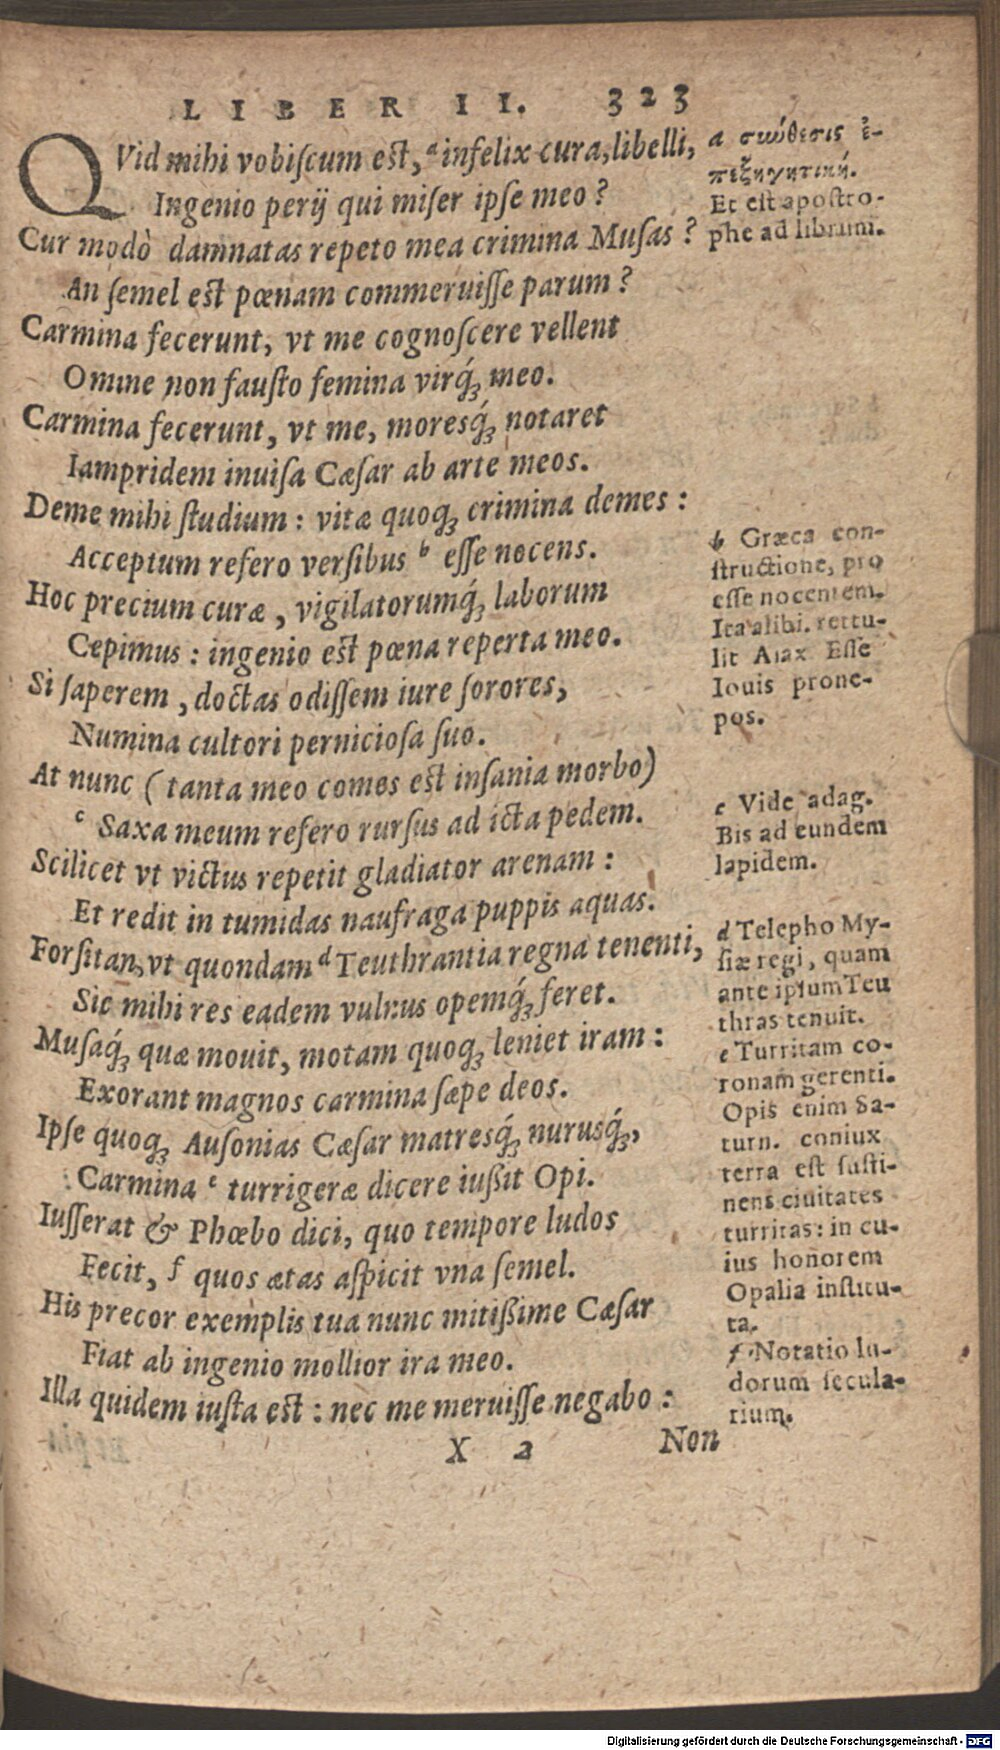 LIBER II. 323
QVid mihi vobiſcum eſt, ᵃ infelix cura, libelli,
Ingenio perij qui miſer ipſe meo?
Cur modò damnatas repeto mea crimina Muſas?
An ſemel eſt pœnam commeruiſſe parum?
Carmina fecerunt, vt me cognoſcere vellent
Omine non fauſto femina virq́ꝫ meo.
Carmina fecerunt, vt me, moresq́ꝫ notaret
Iampridem inuiſa Cæſar ab arte meos.
Deme mihi ſtudium: vitæ quoqꝫ crimina demes:
Acceptum refero verſibus ᵇ eſſe nocens.
Hoc precium curæ, vigilatorumq́ꝫ laborum
Cepimus: ingenio eſt pœna reperta meo.
Si ſaperem, doctas odiſſem iure ſorores,
Numina cultori pernicioſa ſuo.
At nunc (tanta meo comes eſt inſania morbo)
ᶜ Saxa meum refero rurſus ad icta pedem.
Scilicet vt victus repetit gladiator arenam:
Et redit in tumidas naufraga puppis aquas.
Forſitan, vt quondam ᵈ Teuthrantia regna tenenti,
Sic mihi res eadem vulnus opemq́ꝫ feret.
Muſaq́ꝫ quæ mouit, motam quoqꝫ leniet iram:
Exorant magnos carmina ſæpe deos.
Ipſe quoqꝫ Auſonias Cæſar matresq́ꝫ nurusq́ꝫ,
Carmina ᵉ turrigeræ dicere iußit Opi.
Iuſſerat & Phœbo dici, quo tempore ludos
Fecit, ᶠ quos ætas aſpicit vna ſemel.
His precor exemplis tua nunc mitißime Cæſar
Fiat ab ingenio mollior ira meo.
Illa quidem iuſta eſt: nec me meruiſſe negabo:
X 2 Non
a σιώθεσις ἐ-
πεξηγητική.
Et eſt apoſtro-
phe ad librum.
b Græca con-
ſtructione, pro
eſſe nocentem.
Ita alibi. rettu-
lit Aiax Eſſe
Iouis prone-
pos.
c Vide adag.
Bis ad eundem
lapidem.
d Telepho My-
ſiæ regi, quam
ante ipſum Teu
thras tenuit.
e Turritam co-
ronam gerenti.
Opis enim Sa-
turn. coniux
terra eſt ſuſti-
nens ciuitates
turritas: in cu-
ius honorem
Opalia inſtitu-
ta.
f Notatio lu-
dorum ſecula-
rium.
Digitalisierung gefördert durch die Deutsche Forschungsgemeinschaft - DFG